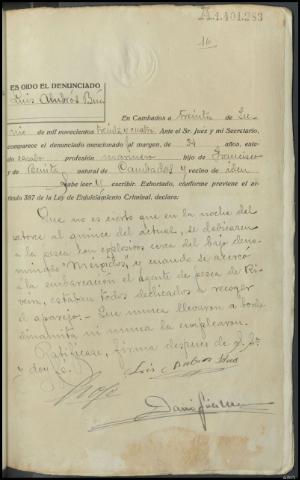 A.1.401.283
16
ES OIDO EL DENUNCIADO
Luis Ambrós Buá
En Cambados a treinta de Ju-
nio de mil novecientos treinta y cuatro. Ante el Sr. Juez y mi Secretario,
comparece el denunciado mencionado al margen, de 34 años, esta-
do casado profesión marinero hijo de Francisco
y de Benita natural de Cambados y vecino de idem
sabe leer y escribir. Exhortado, conforme previene el ar-
tículo 387 de la Ley de Enjuiciamiento Criminal, declara:
Que no es cierto que en la noche del
catorce al quince del actual, se dedicasen
a la pesca con explosivos cerca del bajo deno-
minado y cuando se acercó
la embarcación el agente de pesca de Ri-
veira, estaban todos dedicados a recoger
el aparejo. - Que nunca llevaron a bordo
dinamita ni nunca la emplearon.
Ratificase, firma despues de S. Sª
y doy fe.
Luis Ambros Bua